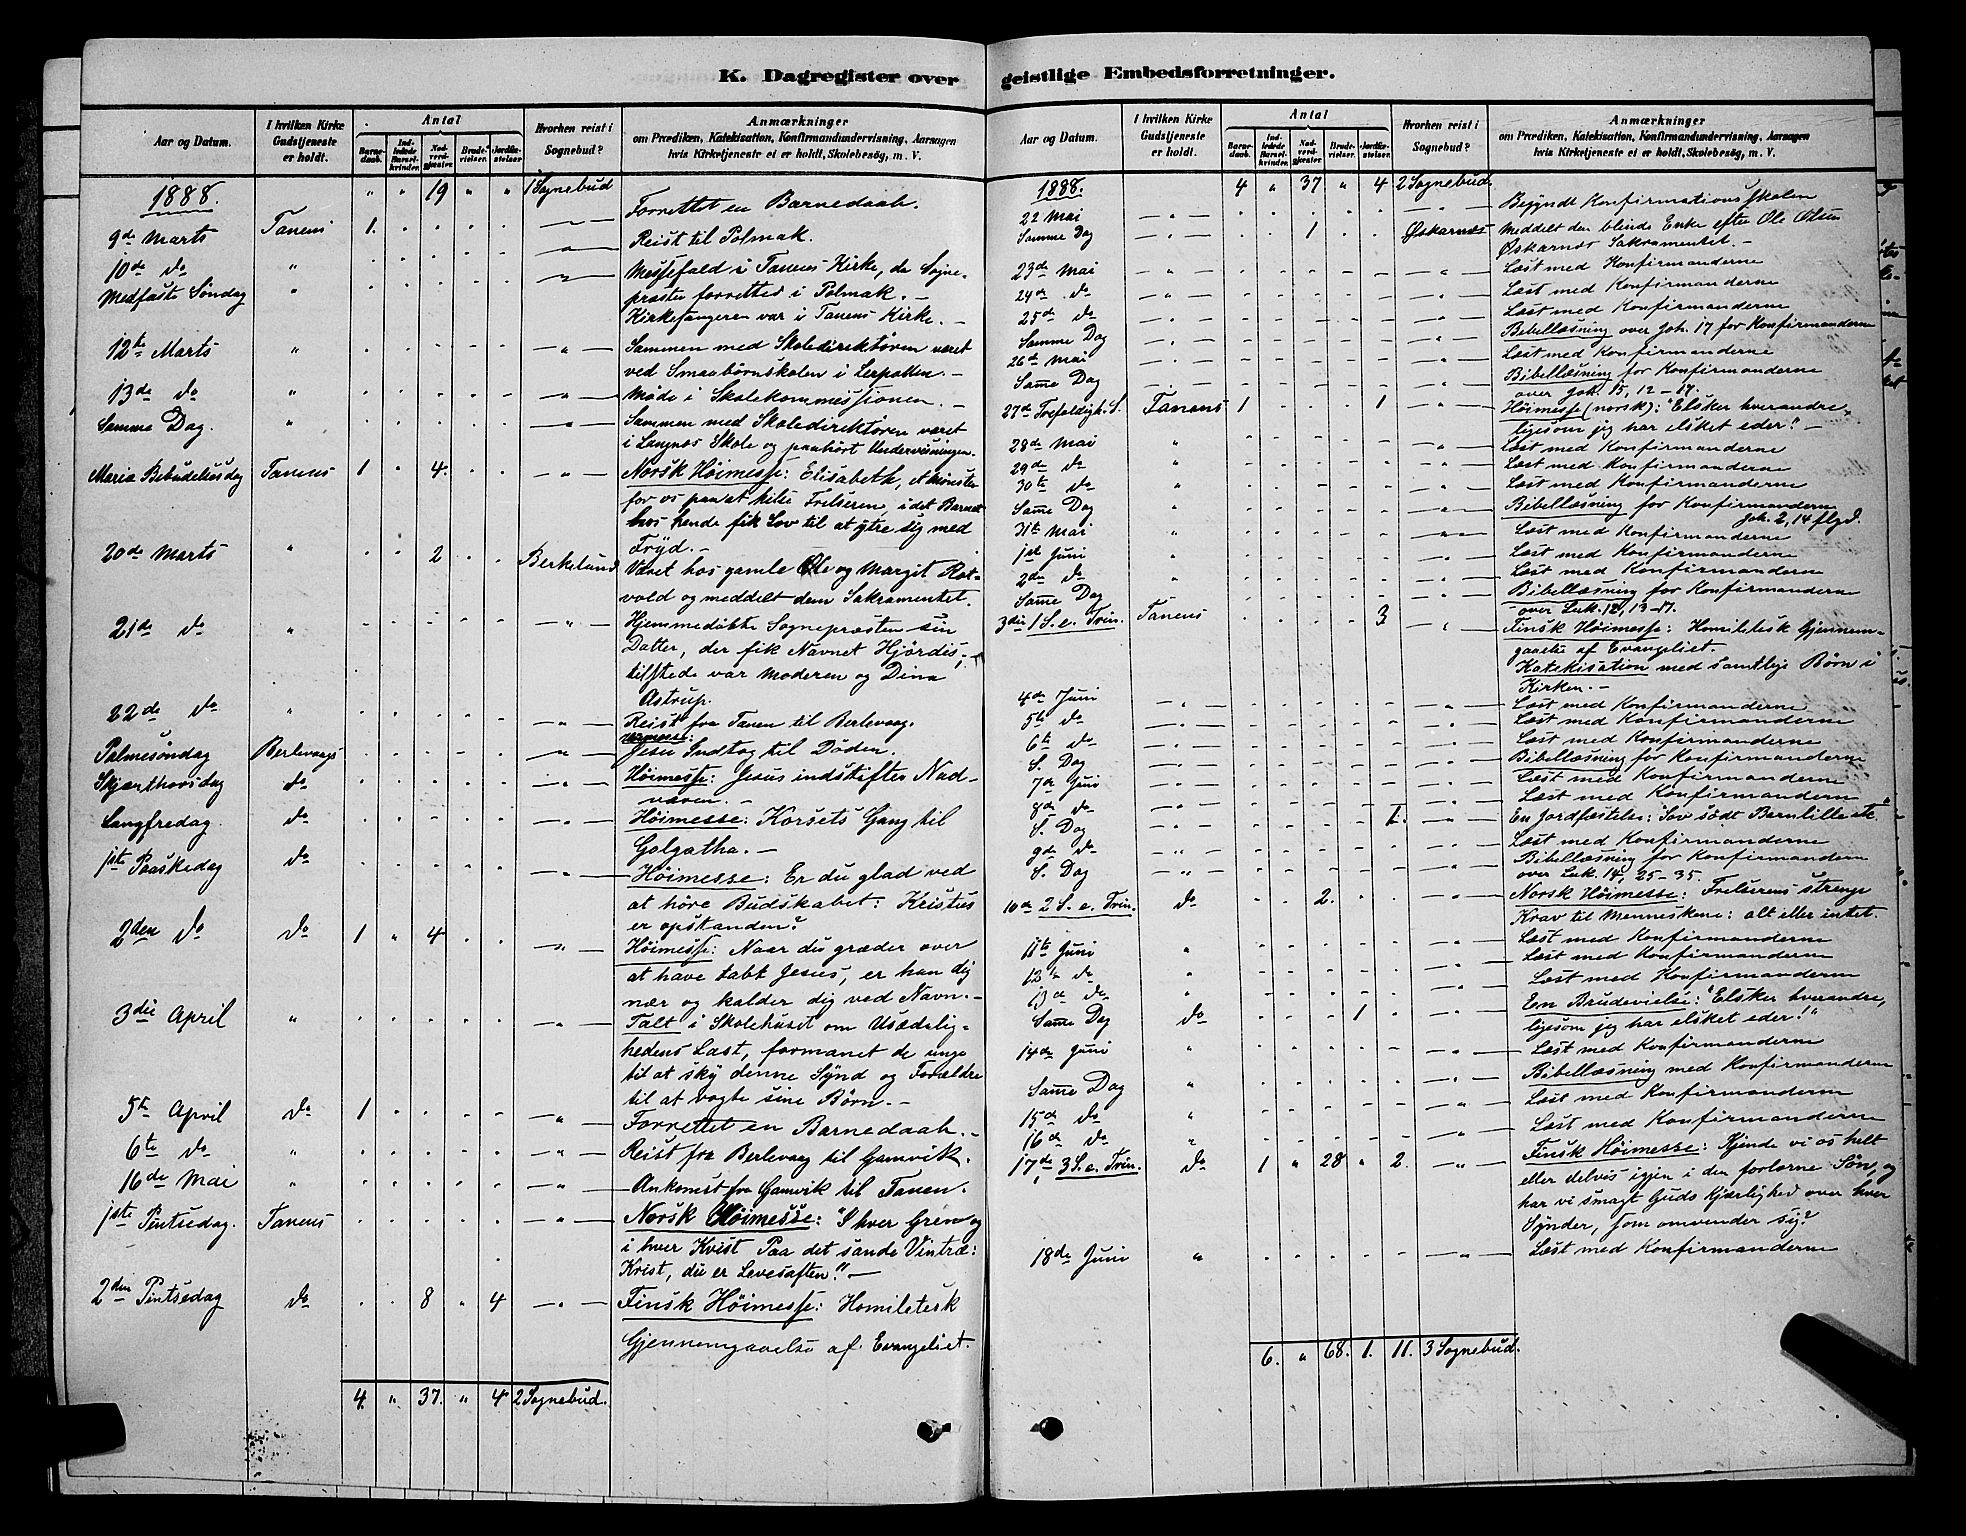 K. Dagregister over geistlige Embedsforretninger.
Aar og Datum. I hvilken Kirke Gudstjeneste er holdt. Antal Barnedaab. Indledede Barselkvinder. Nadverdgjæster. Brudevielser. Jordfæstelser. Hvorhen reist i Sognebud? Anmærkninger om Prædiken, Katekisation, Konfirmandundervisning, Aarsagen hvis Kirketjeneste ei er holdt, Skolebesøg, m. V.
1888. " " 19 " " 1 Sognebud
9de Marts Tanens 1. Forrettet en Barnedaab.
10de do " Reist til Polmak.
Medfaste Søndag " Messefald i Tanens Kirke, da Sogne-
præsten forretted i Polmak. –
Kirkesangeren var i Tanens Kirke. –
12te Marts " Sammen med Skoledirektøren været
ved Smaabørnskolen i Lerpotten. –
13de do " Møde i Skolekommissionen. –
Samme Dag. " Sammen med Skoledirektøren været
i Langnæs Skole og paahørt Undervisningen.
Maria Bebudelsesdag Tanens 1 " 4. Norsk Høimesse: Elisabeth, et Mønster
for os paa at hilse Frelseren, i det Barnet
hos hende fik Lov til at ytre sig med
Fryd. –
20de Marts " 2 Berkelund Været hos gamle Ole og Margit Rot-
vold og meddelt dem Sakramentet.
21de do " Hjemmedøbte Sognepræsten sin
Datter, der fik Navnet Hjørdis; –
tilstede var Moderen og Dina
Astrup.
22de do " Reist fra Tanen til Berlevaag.
Palmesøndag Berlevaags Høimesse: Jesu Indtog til Døden.
Skjærthorsdag do Høimesse: Jesus indstifter Nad-
veren. –
Langfredag. do Høimesse: Korsets Gang til
Golgatha. –
1ste Paaskedag do Høimesse: Er du glad ved
at høre Budskabet: Kristus
er opstanden?
2den do do 1 " 4 Høimesse: Naar du græder over
at have tabt Jesus, er han dig
nær og kalder dig ved Navn. –
3die April " Talt i Skolehuset om Usædelig-
hedens Last, formanet de unge
til at sky denne Synd og Forældre
til at vogte sine Børn. –
5te April do 1 Forrettet en Barnedaab. –
6te do " Reist fra Berlevaag til Gamvik.
16de Mai " Ankomst fra Gamvik til Tanen.
1ste Pintsedag. Tanens Norsk Høimesse: "I hver Gren og
i hver Kvist Paa det sande Vintræ:
Krist, du er Levesaften!" –
2den Pintsedag do 8 " 4 Finsk Høimesse: Homiletisk
Gjennemgaaelse af Evangeliet.
4. " 37. " 4 2 Sognebud.
Aar og Datum. I hvilken Kirke Gudstjeneste er holdt. Antal Barnedaab. Indledede Barselkvinder. Nadverdgjæster. Brudevielser. Jordfæstelser. Hvorhen reist i Sognebud? Anmærkninger om Prædiken, Katekisation, Konfirmandundervisning, Aarsagen hvis Kirketjeneste ei er holdt, Skolebesøg, m. V.
1888. 4 " 37 " 4 2 Sognebud.
22 Mai Begyndt Konfirmationsskolen
Samme Dag 1 Øskarnæs Meddelt den blinde Enke efter Ol. Olsen
Øskarnæs Sakramentet. –
23de Mai Læst med Konfirmanderne
24de do Læst med Konfirmanderne
25de do Læst med Konfirmanderne
Samme Dag Bibellæsning over Joh. 17 for Konfirmanderne
26de Mai Læst med Konfirmanderne
Samme Dag Bibellæsning for Konfirmanderne
over Joh. 15, 12–17.
27de Trefoldigh. S. Tanens 1 1 Høimesse (norsk): "Elsker hverandre,
ligesom jeg har elsket eder!" –
28de Mai " Læst med Konfirmanderne
29de do " Læst med Konfirmanderne
30te do " Læst med Konfirmanderne
Samme Dag " Bibellæsning for Konfirmanderne
Joh. 2, 14 flgd.
31te Mai " Læst med Konfirmanderne
1ste Juni " Læst med Konfirmanderne
2de do " Læst med Konfirmanderne
Samme Dag " Bibellæsning for Konfirmanderne
over Luk. 12, 13–17.
3die 1 S. e. Trin. Tanens 3 Finsk Høimesse: Homiletisk Gjennem-
gaaelse af Evangeliet.
Katekisation med samtlige Børn i
Kirken. –
4de Juni Læst med Konfirmanderne
5te do Læst med Konfirmanderne
6te do Læst med Konfirmanderne
S. Dag Bibellæsning for Konfirmanderne
7de Juni Læst med Konfirmanderne
8de do Læst med Konfirmanderne
S. Dag 1. En Jordfæstelse: "Sov sødt Barnlille" etc.
9de do Læst med Konfirmanderne
S. Dag Bibellæsning for Konfirmanderne
over Luk. 14, 25–35.
10de 2 S. e. Trin. do 2. Norsk Høimesse: Frelserens strenge
Krav til Menneskene: alt eller intet.
11te Juni " Læst med Konfirmanderne
12te do " Læst med Konfirmanderne
13de do " Læst med Konfirmanderne
Samme Dag do 1 En Brudevielse: "Elsker hverandre,
ligesom jeg har elsket eder!"
14de Juni " Læst med Konfirmanderne
Samme Dag " Bibellæsning med Konfirmanderne
15de do " Læst med Konfirmanderne
16de do " Læst med Konfirmanderne
17de 3 S. e. Trin. do 1 " 28 " 2. Finsk Høimesse: Kjende vi os helt
eller delvis igjen i den forlorne Søn, og
har vi smagt Guds Kjærlighed over hver
Synder, som omvender sig?
18de Juni " Læst med Konfirmanderne
6. " 68. 1. 11. 3 Sognebud.